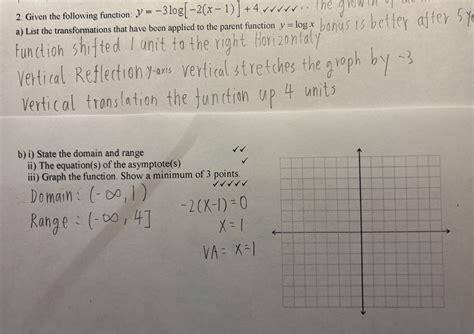 2. Given the following function: y = −3log[−2(x − 1)] + 4 ✓✓✓✓✓✓
a) List the transformations that have been applied to the parent function y = log x bonus is better after 5
Function shifted 1 unit to the right Horizontaly
Vertical Reflection y-axis vertical stretches the graph by -3
Vertical translation the function up 4 units
b) i) State the domain and range ✓✓
ii) The equation(s) of the asymptote(s) ✓
iii) Graph the function. Show a minimum of 3 points. ✓✓✓✓✓
Domain: (-∞, 1)
Range: (-∞, 4]
-2(x-1)=0
x=1
VA= x=1